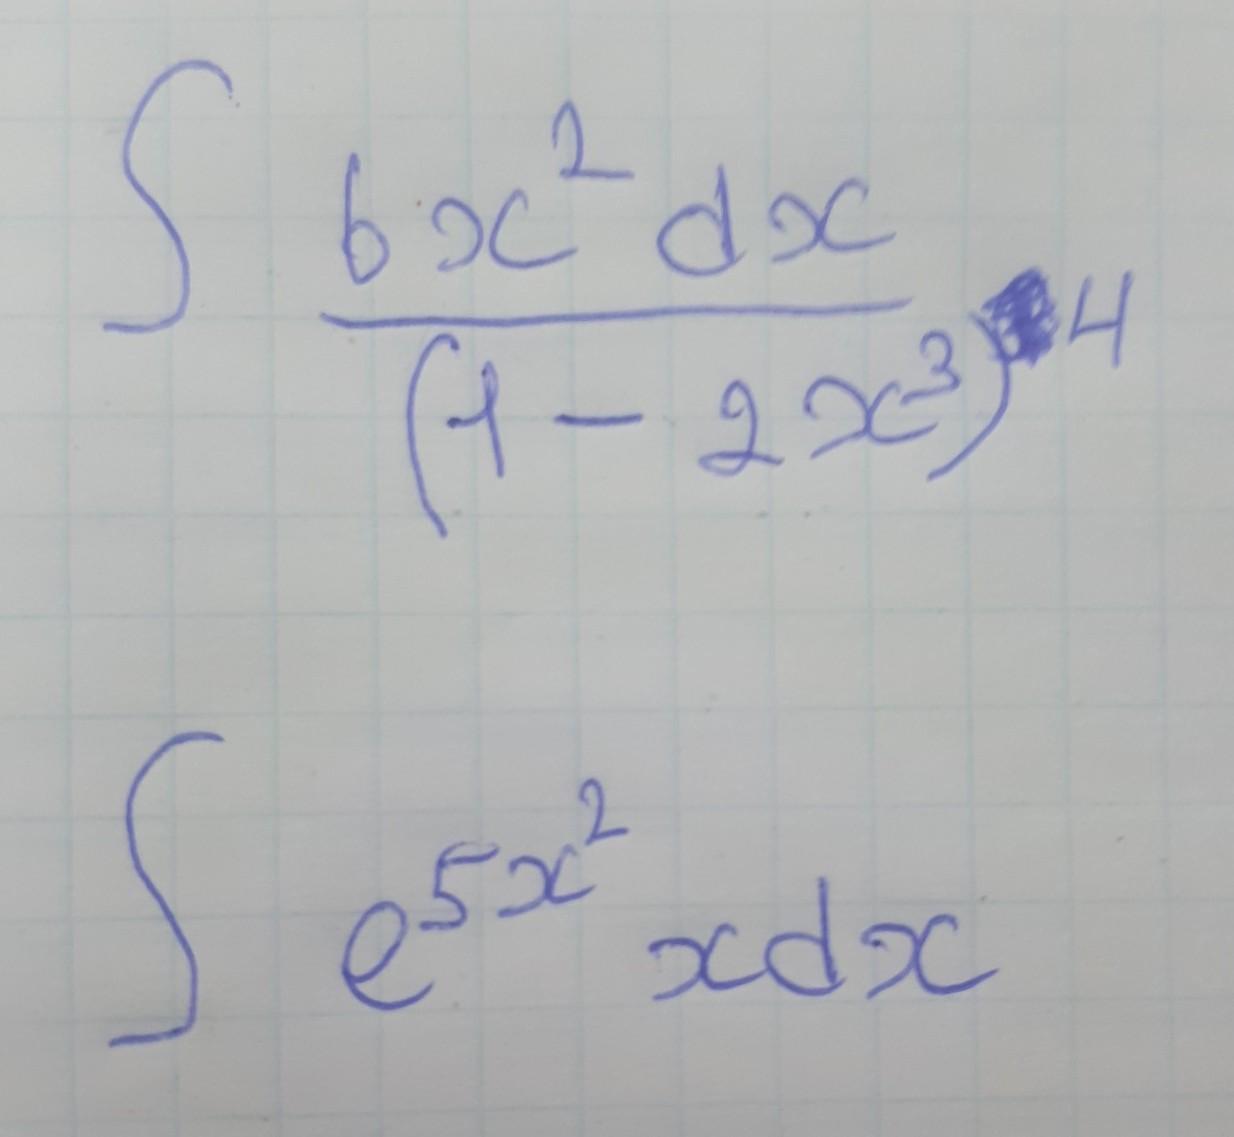 ∫ 6x² dx / (1 − 2x³)⁴
∫ e^{5x²} x dx